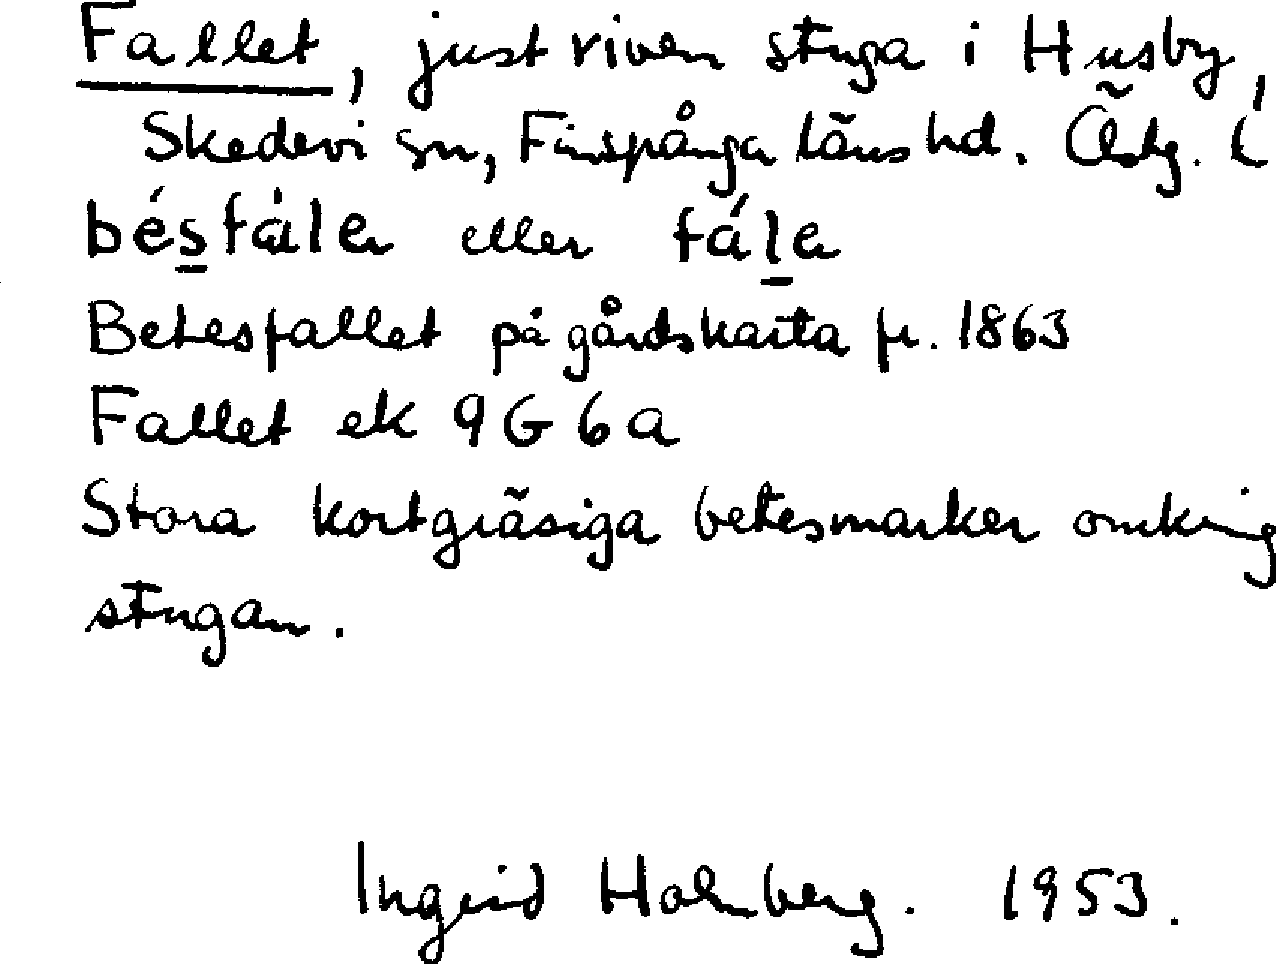 Fallet, just riven stuga i Husby,
Skedevi sn, Finspånga läns hd. Östg. l
bésfàler eller fále
Betesfallet på gårdskarta fr. 1863
Fallet ek 9G6a
Stora kortgräsiga betesmarker omkring
stugan.
Ingrid Holmberg. 1953.